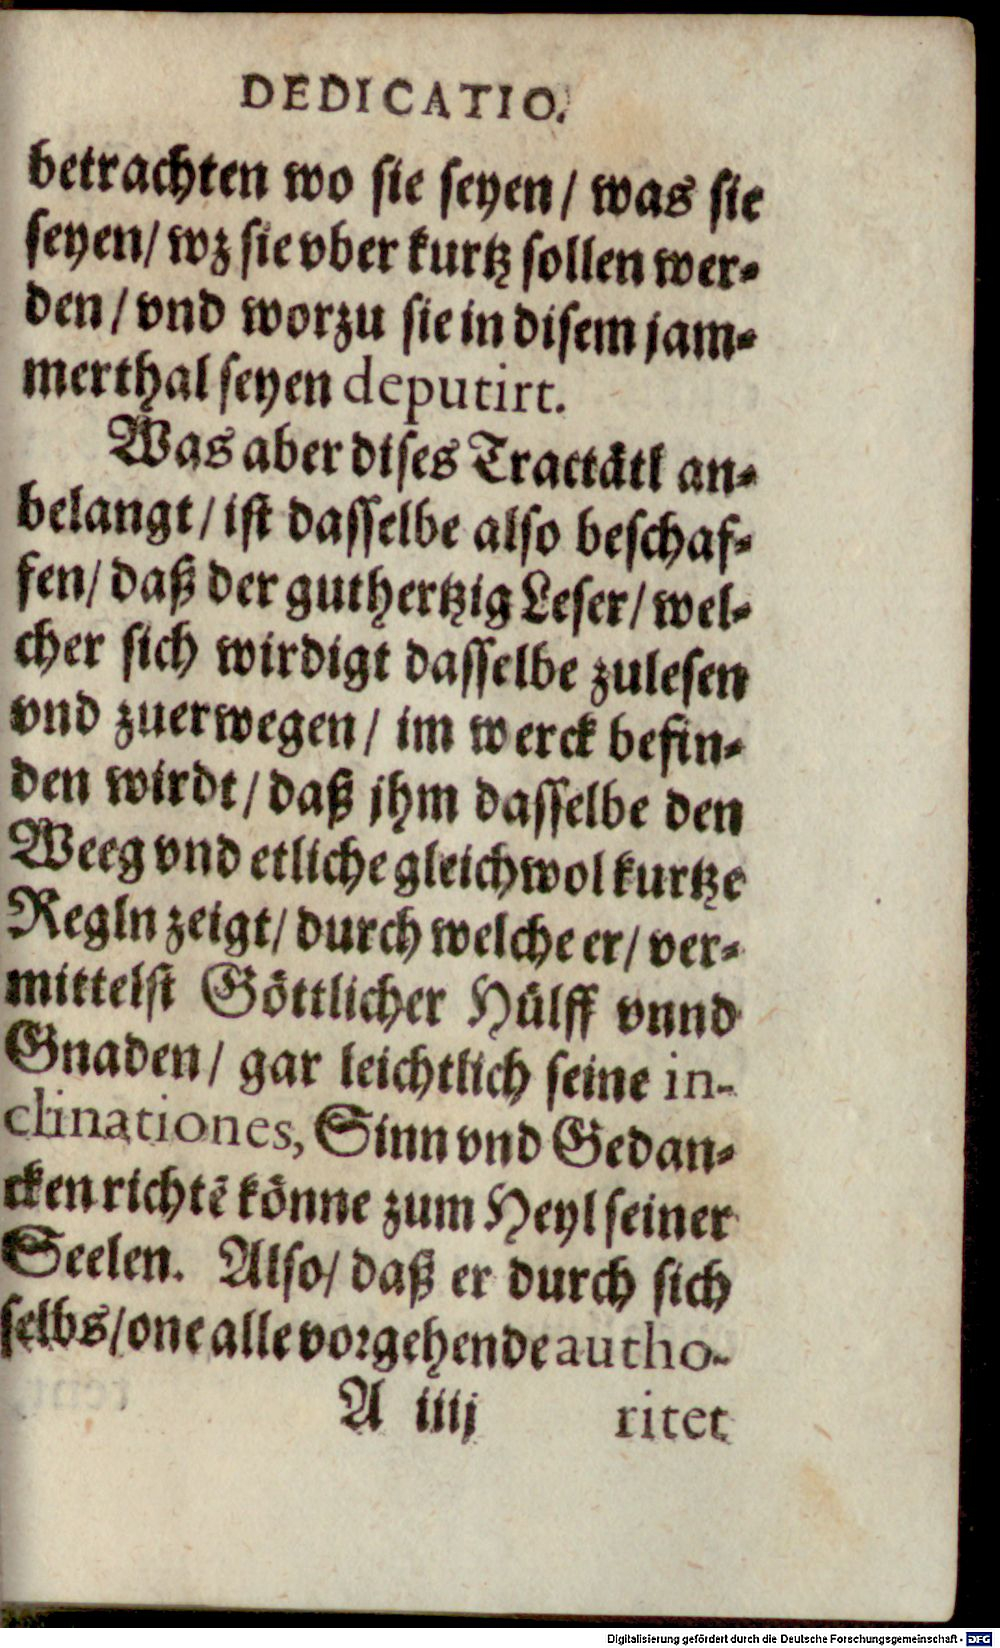 DEDICATIO.
betrachten wo sie seyen / was sie
seyen / wz sie vber kurtz sollen wer-
den / vnd worzu sie in disem jam-
merthal seyen deputirt.
Was aber dises Tractätl an-
belangt / ist dasselbe also beschaf-
fen / daß der guthertzig Leser / wel-
cher sich wirdigt dasselbe zulesen
vnd zuerwegen / im werck befin-
den wirdt / daß jhm dasselbe den
Weeg vnd etliche gleichwol kurtze
Regln zeigt / durch welche er / ver-
mittelst Göttlicher Hülff vnnd
Gnaden / gar leichtlich seine in-
clinationes, Sinn vnd Gedan-
cken richtē könne zum Heyl seiner
Seelen. Also / daß er durch sich
selbs / one alle vorgehende autho-
A iiij ritet
Digitalisierung gefördert durch die Deutsche Forschungsgemeinschaft - DFG